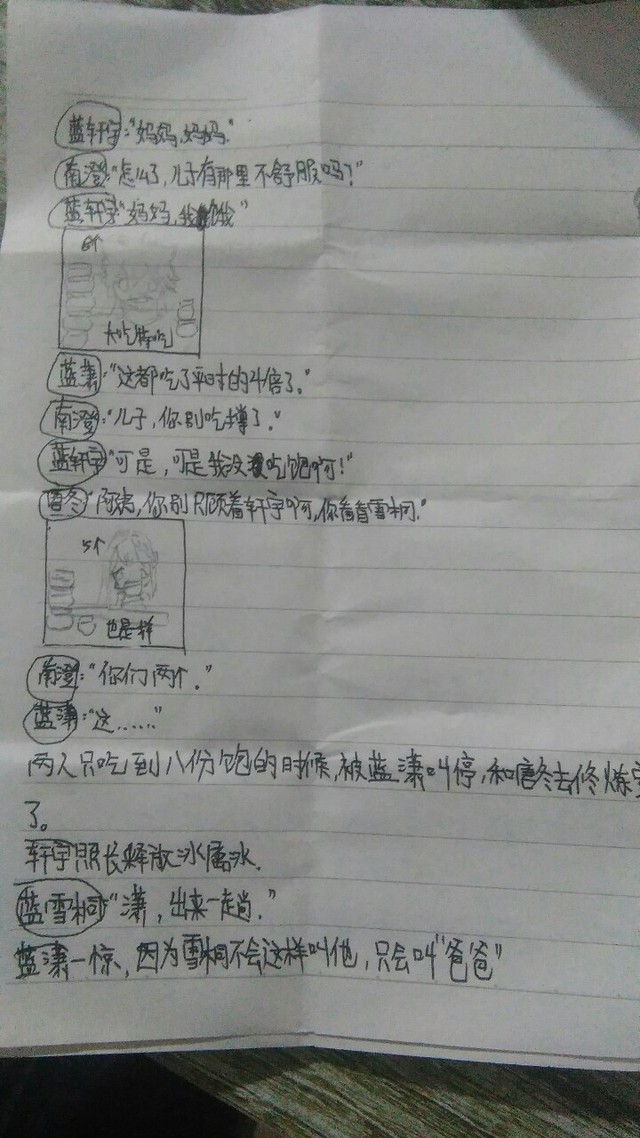 蓝轩宇:"妈妈,妈妈."
南澄:"怎么了,儿子有那里不舒服吗?"
蓝轩宇"妈妈,我饿"
6个
大吃特吃
蓝潇:"这都吃了平时的4倍了."
南澄:"儿子,你别吃撑了."
蓝轩宇"可是,可是我没吃饱啊!"
唐冬"阿潇,你别只顾着轩宇啊,你看看雪桐."
5个
也是一样
南澄:"你们两个."
蓝潇:"这……"
两人只吃到八份饱的时候,被蓝潇叫停,和唐冬去修炼室
了。
轩宇照长释放冰属冰.
蓝雪桐"潇,出来一走肖."
蓝潇一惊,因为雪桐不会这样叫他,只会叫"爸爸"